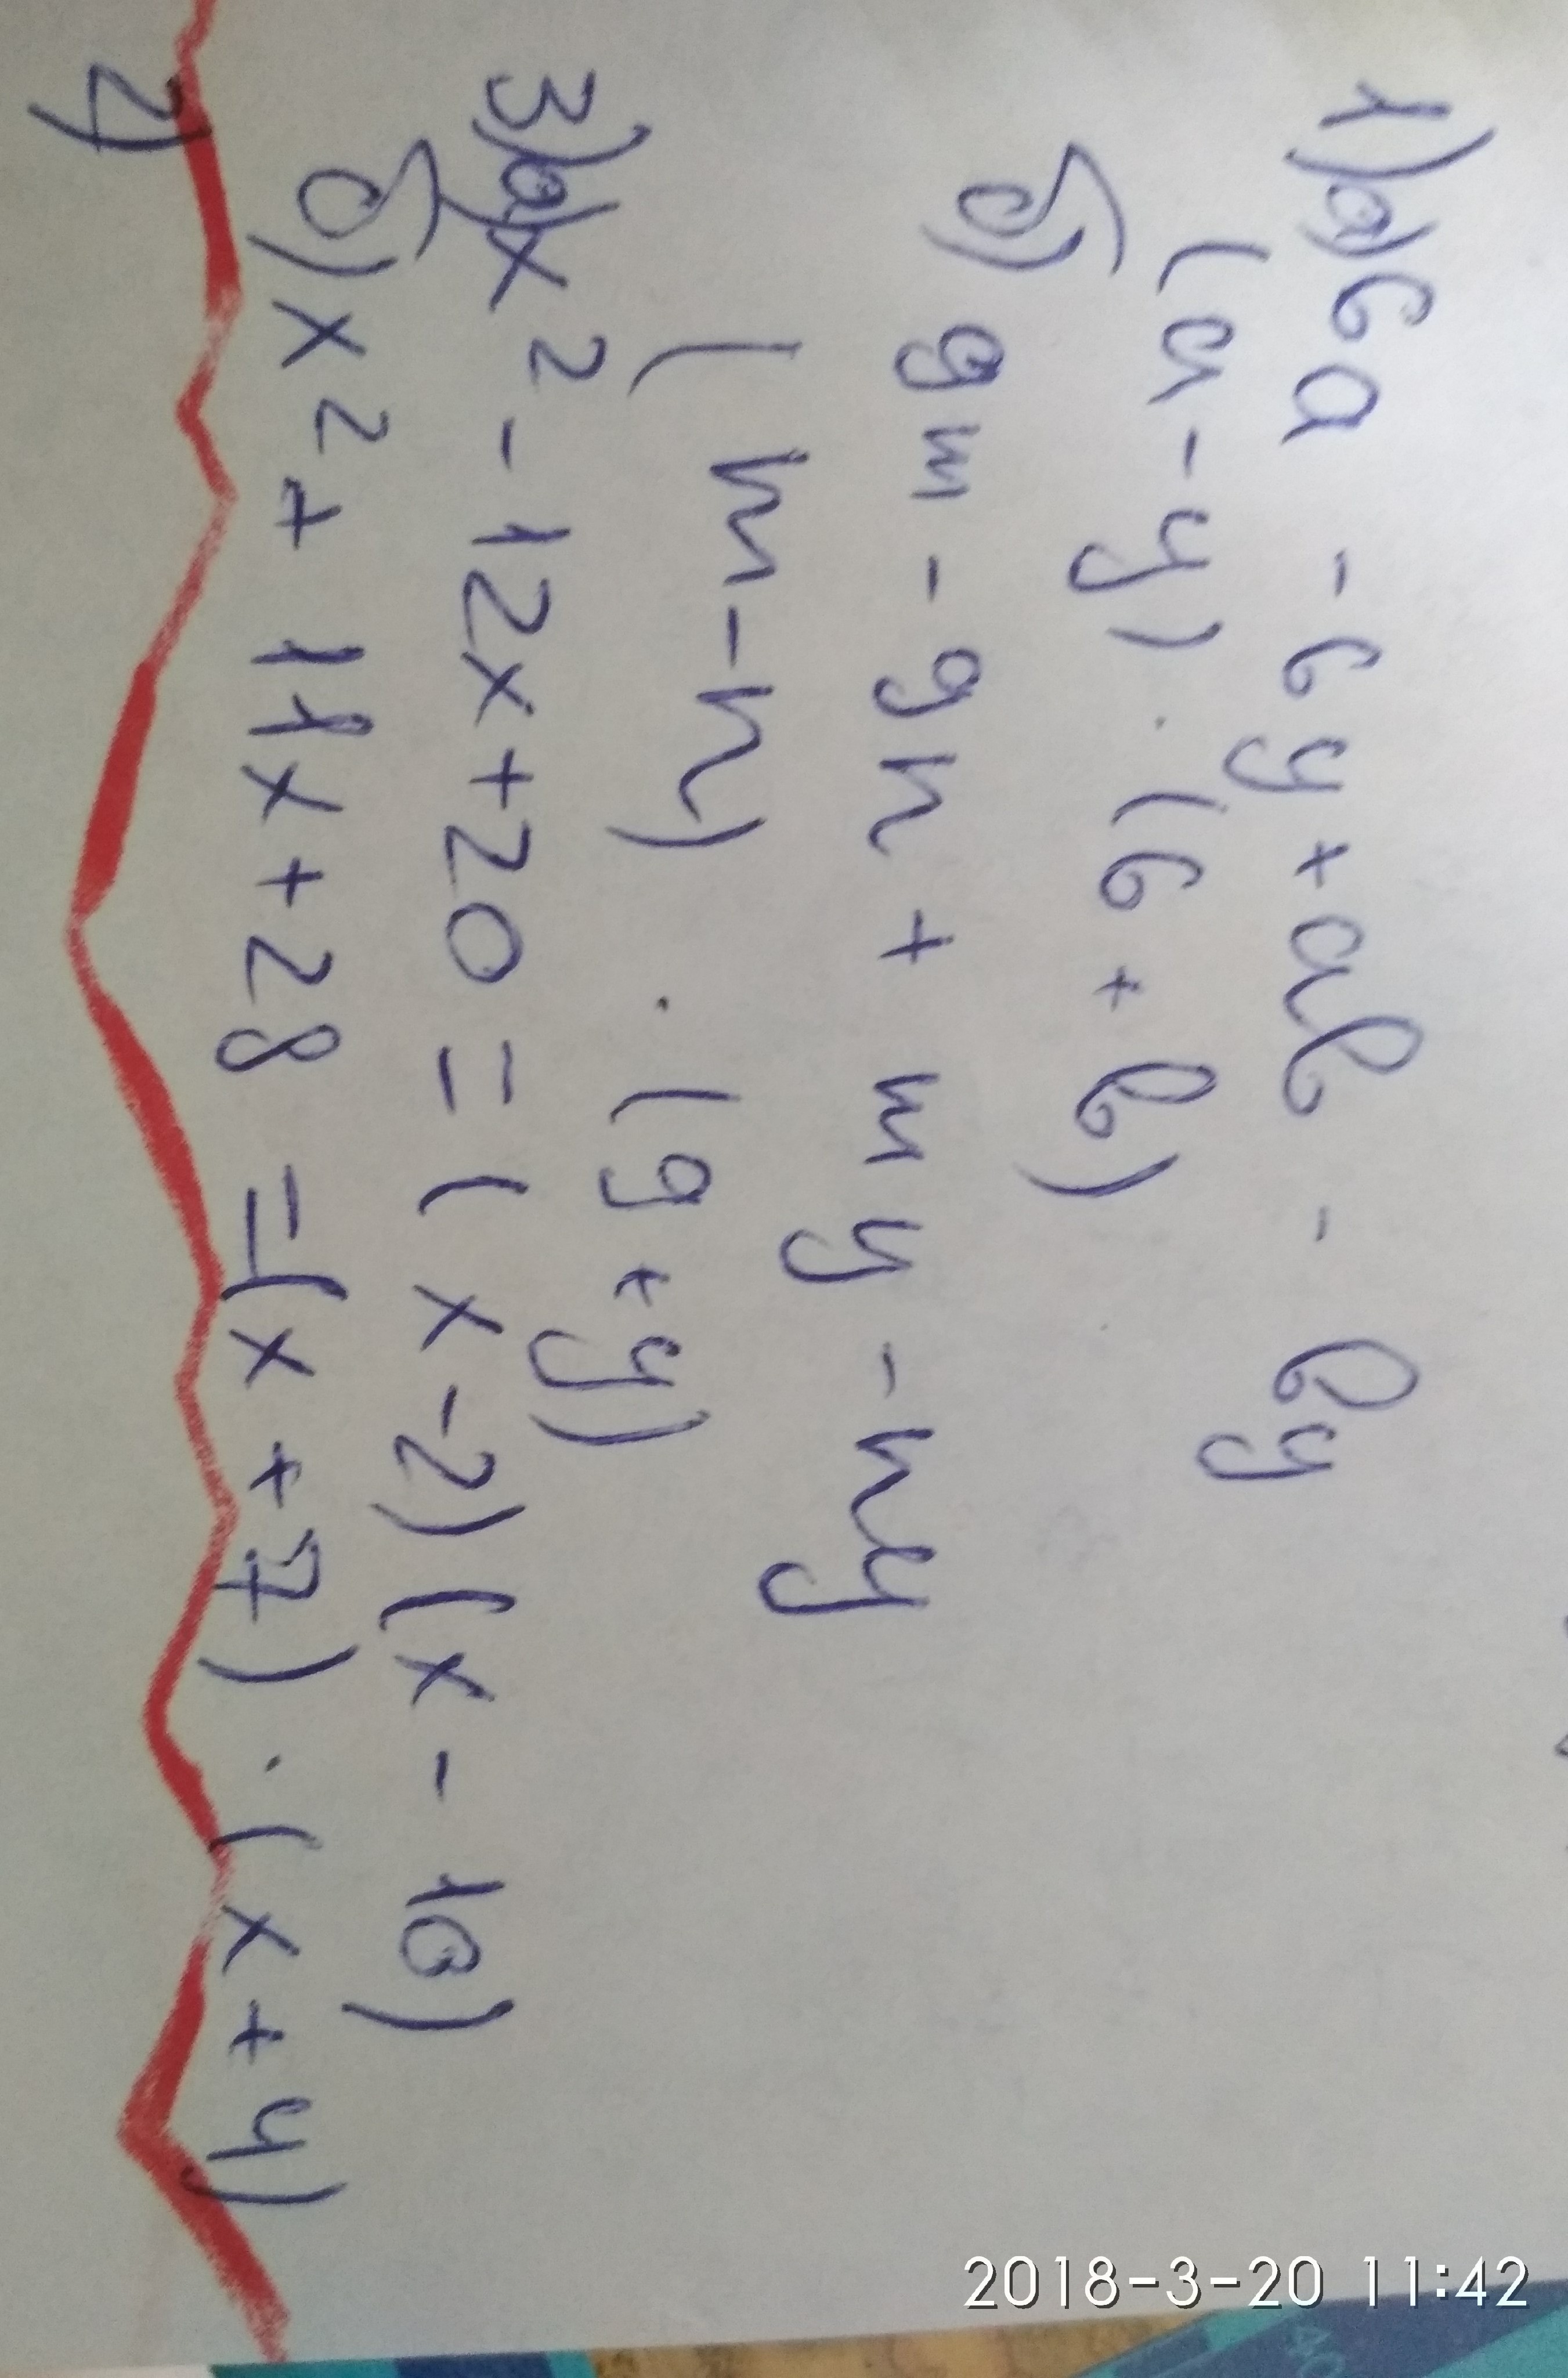 1) а) 6a - 6y + ab - by
(a - y) · (6 + b)
б) 9m - 9n + my - ny
(m - n) · (9 + y)
3) а) x² - 12x + 20 = (x - 2) (x - 10)
б) x² + 11x + 28 = (x + 7) · (x + 4)
2018-3-20 11:42